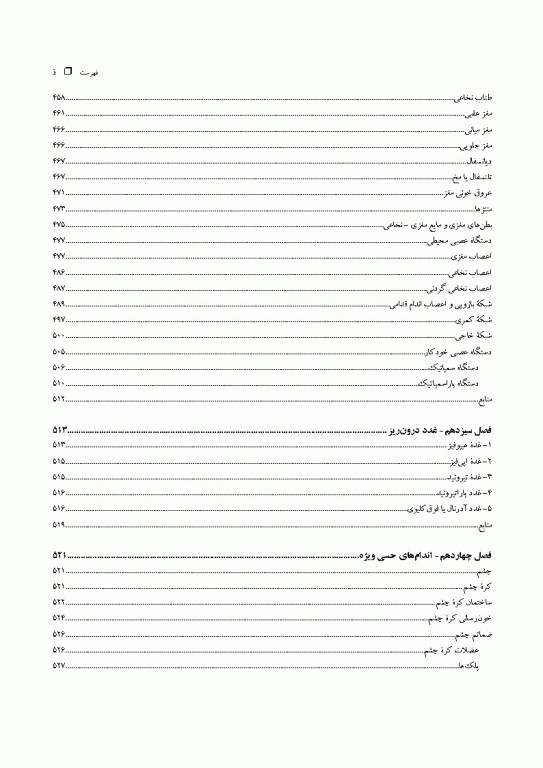 فهرست ❐ ذ
طناب نخاعی ۴۵۸
مغز عقبی ۴۶۱
مغز میانی ۴۶۶
مغز جلویی ۴۶۶
دیانسفال ۴۶۷
تلانسفال یا مخ ۴۶۷
عروق خونی مغز ۴۷۱
مننژها ۴۷۳
بطن‌های مغزی و مایع مغزی – نخاعی ۴۷۵
دستگاه عصبی محیطی ۴۷۷
اعصاب مغزی ۴۷۷
اعصاب نخاعی ۴۸۶
اعصاب نخاعی گردنی ۴۸۷
شبکهٔ بازویی و اعصاب اندام قدامی ۴۸۹
شبکهٔ کمری ۴۹۷
شبکهٔ خاجی ۵۰۰
دستگاه عصبی خودکار ۵۰۵
دستگاه سمپاتیک ۵۰۶
دستگاه پاراسمپاتیک ۵۱۰
منابع ۵۱۲
فصل سیزدهم - غدد درون‌ریز ۵۱۳
۱-غدهٔ هیپوفیز ۵۱۳
۲-غدهٔ اپی‌فیز ۵۱۵
۳-غدهٔ تیروئید ۵۱۵
۴-غدد پاراتیروئید ۵۱۶
۵-غدد آدرنال یا فوق‌کلیوی ۵۱۶
منابع ۵۱۹
فصل چهاردهم - اندام‌های حسی ویژه ۵۲۱
چشم ۵۲۱
کرهٔ چشم ۵۲۱
ساختمان کرهٔ چشم ۵۲۲
خون‌رسانی کرهٔ چشم ۵۲۴
ضمائم چشم ۵۲۶
عضلات کرهٔ چشم ۵۲۶
پلک‌ها ۵۲۷